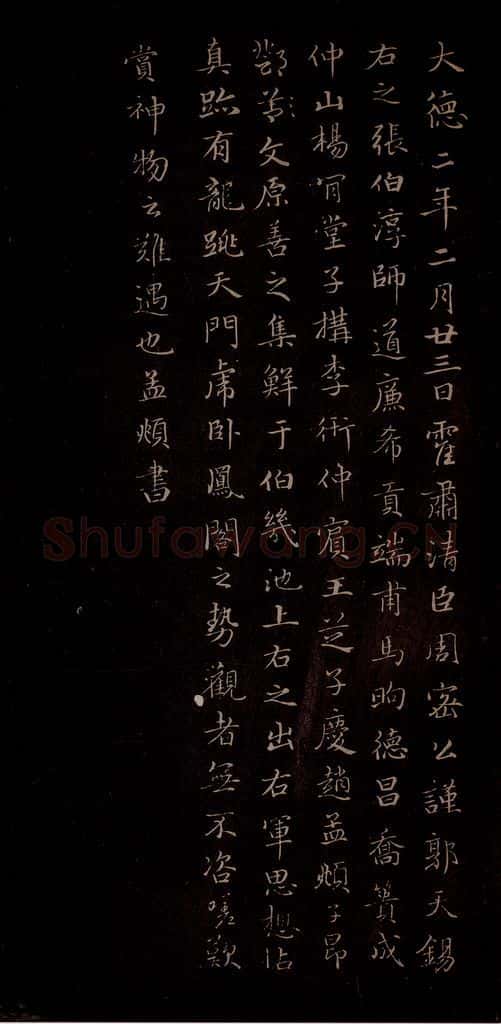 大德二年二月廿三日霍肅清臣周密公謹郭天錫
右之張伯淳師道廉希貢端甫馬昫德昌喬簣成
仲山楊肎堂子構李衎仲賓王芝子慶趙孟頫子昂
鄧文原善之集鮮于伯幾池上右之出右軍思想帖
真跡有龍跳天門虎卧鳳閣之勢觀者無不咨嗟歎
賞神物之難遇也孟頫書
Shufawang.CN